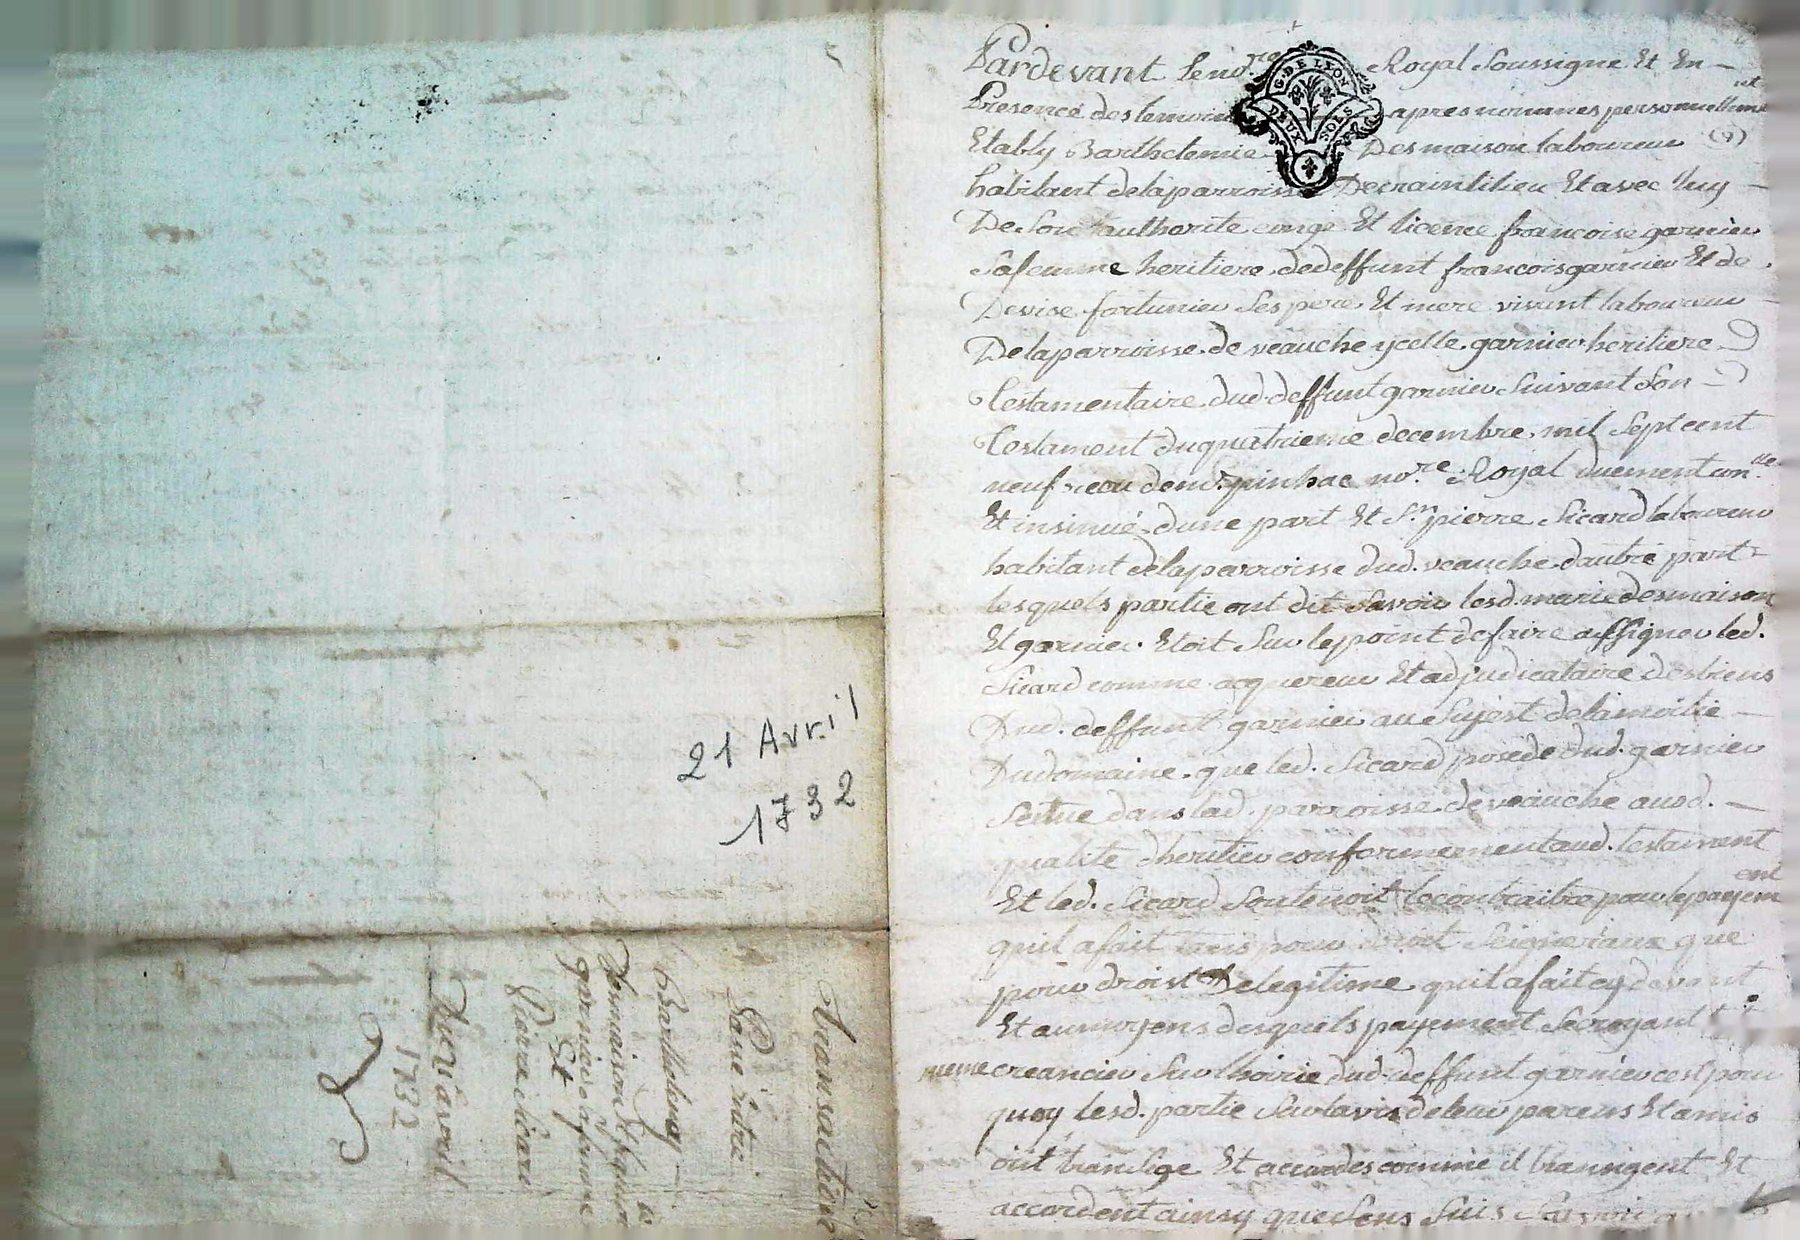 21 Avril
1732
transaction
passé Entre
Barthelemy
Desmaison Et
garnier sa femme
Et
Pierre Sicard
Du 21 avril
1732
Pardevant le no.re Royal Soussigne Et En
G. DE LYON
DEUX SOLS
Presence des temoins apres nommes personnellement
Etably Barthelemie Desmaison laboureur
habitant de la parroisse De craintilieu Et avec luy
De Son authorite congé Et licence francoise garnier
Sa femme heritiere de deffunt francois garnier Et de
Denise fortunier Ses pere Et mere vivant laboureur
De la parroisse de veauche ycelle garnier heritiere
testamentaire dud deffunt garnier Suivant Son
testament du quatrieme decembre mil Sept cent
neuf recu de me. pinhac no.re Royal duement con.lle
Et insinué d'une part Et S.r pierre Sicard laboureur
habitant de la parroisse dud. veauche d'autre part
lesquels partie ont dit Savoir lesd. marie desmaison
Et garnier Etoit Sur le point de faire assigner led.
Sicard comme acquereur Et adjudicataire des biens
Dud. deffunt garnier au Sujest de la moitie
Du domaine que led. Sicard posede dud. garnier
Seitue dans lad. parroisse de veauche aud.
qualite d'heritier conformement aud. testament
Et led. Sicard Soutenoit le contraitre pour le payement
qu'il a fait tans pour droit Seigneriaux que
pour droist De legitime qu'il a fait cy devant
Et au moyens desquels payement Se croyant
meme creancier Sur lhoirie dud. deffunt garnier c'est pour
quoy lesd. partie Sur lavis de leur parens Et amis
ont transige Et accordes comme il transigent Et
accordent ainsy que Sens Suis Savoir